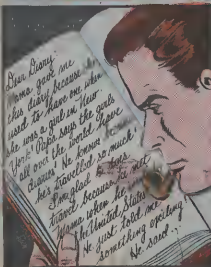 Dear Diary
Mama gave me
this diary because she
used to have one when
she was a girl in New
York! Papa says the girls
all over the world have
diaries! He knows,
he's travelled so much!
I'm glad he did
travel, because he met
Mama when he
the United States!
He just told me
something exciting!
He said...